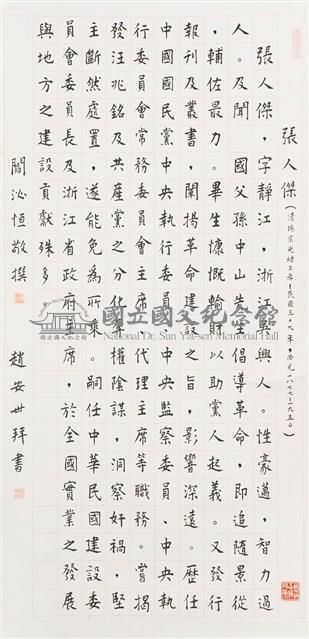 張人傑(清德宗光緒三年—民國三十九年,西元一八七七—一九五〇)
張人傑,字靜江,浙江吳興人。性豪邁,智力過
人。及聞 國父孫中山先生倡導革命,即追隨景從
,輔佐最力。畢生慷慨輸財以助黨人起義。又發行
報刊及叢書,闡揚革命建設之旨,影響深遠。歷任
中國國民黨中央執行委員、中央監察委員、中央執
行委員會常務委員會主席、代理主席等職務。嘗揭
發汪兆銘及共產黨之分化奪權陰謀,洞察奸禍,堅
主斷然處置,遂能免為所乘。嗣任中華民國建設委
員會委員長及浙江省政府主席,於全國實業之發展
與地方之建設貢獻殊多
閻沁恒敬撰 趙安世拜書
國立國父紀念館
National Dr. Sun Yat-sen Memorial Hall